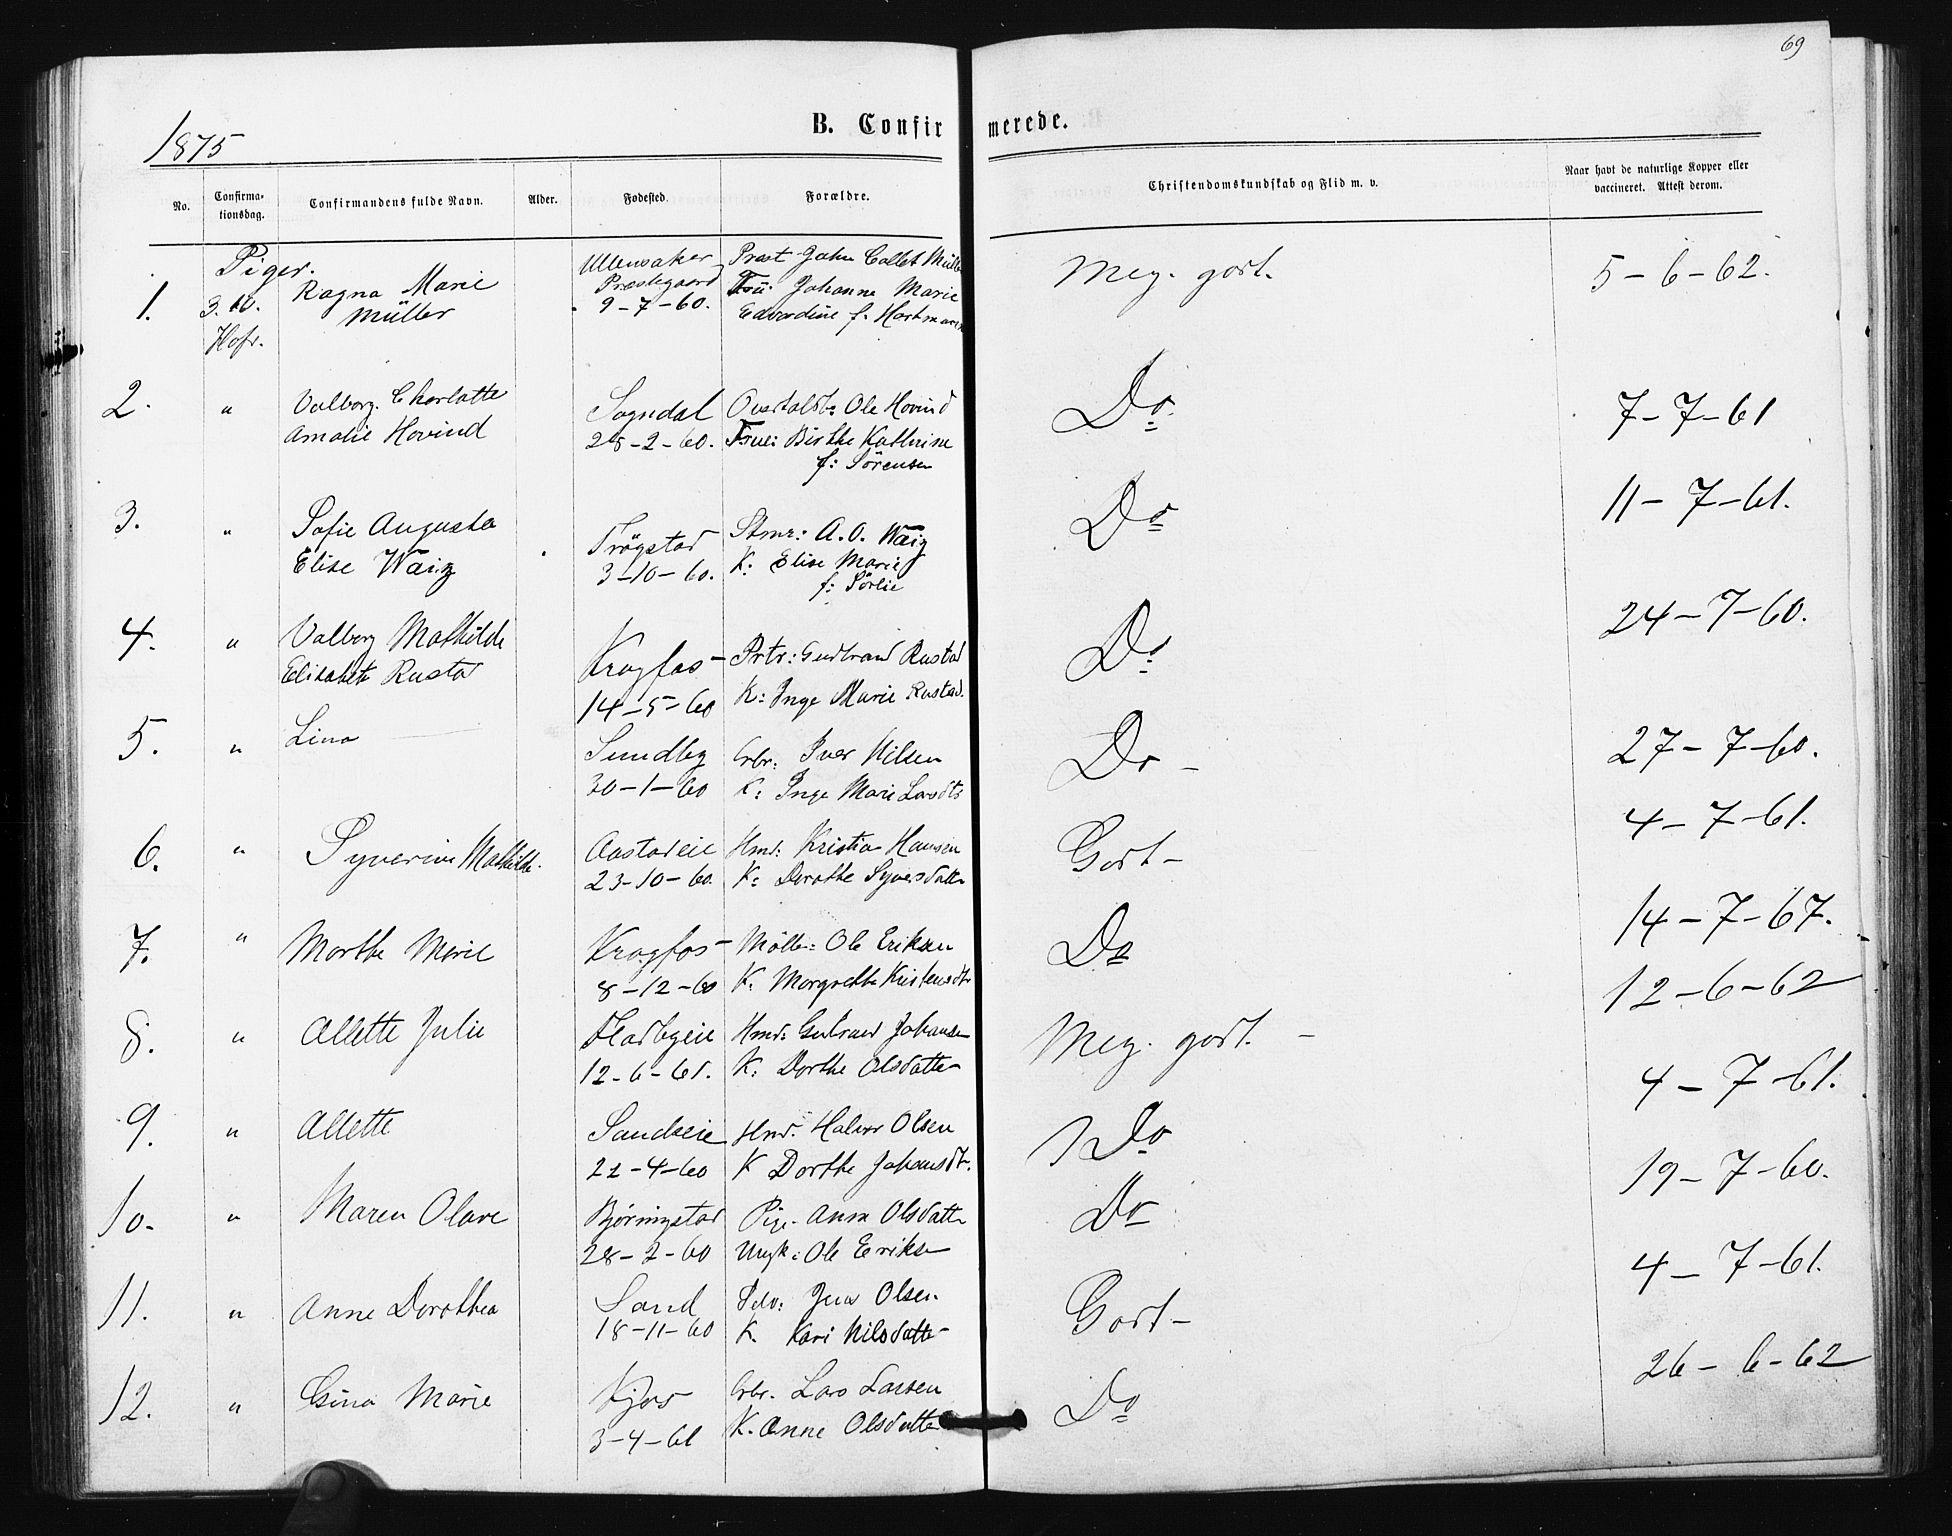 69
1875
B. Confirmerede.
No.
Confirma-
tionsdag.
Confirmandens fulde Navn.
Alder.
Fødested.
Forældre.
Christendomskundskab og Flid m. v.
Naar havt de naturlige Kopper eller
vaccineret. Attest derom.
Piger.
1. 3. 10. Hofr.
Ragna Marie
Müller
Ullensaker
Præstegaard
9-7-60.
Præst John Collet Müller
Fru: Johanne Marie
Edvardine f. Hartmann
Meg. godt.
5-6-62.
2. "
Valborg Charlotte
Amalie Hovind
Sogndal
28-2-60.
Ole Hovind
Frue: Birthe Kathrine
f: Sörensen
Do
7-7-61
3. "
Sofie Augusta
Elise Waig
Trögstad
3-10-60.
Stmr: A. O. Waig
K: Elise Marie
f: Sörlie
Do
11-7-61.
4. "
Valborg Mathilde
Elisabeth Rustad
Kragfos-
14-5-60
Prtr: Gudbrand Rustad
K: Inge Marie Rustad.
Do
24-7-60.
5. "
Lina
Sundby
30-1-60
Arbr: Iver Nilsen
K: Inge Marie Larsdtr
Do -
27-7-60.
6. "
Syverine Mathilde.
Aastadeie
23-10-60.
Hmd: Kristian Hansen
K: Dorothe Syversdatter
Godt -
4-7-61.
7. "
Marthe Marie
Kragfos-
8-12-60
Möller: Ole Eriksen
K: Margrethe Kristensdtr
Do
14-7-67.
8. "
Allette Julie
12-6-61.
Hmd: Gulbrand Johansen
K: Dorthe Olsdatter
Meg. godt. -
12-6-62
9. "
Allette
Sandseie
22-4-60
Hmd. Halvor Olsen
K Dorthe Johansdtr.
Do
4-7-61.
10. "
Maren Olave
Bjørningstad
28-2-60
Pige. Anne Olsdatter
Ungk: Ole Eriksen
Do
19-7-60.
11. "
Anne Dorothea
Sand
18-11-60
Selv: Jens Olsen
K. Kari Nilsdatter
Godt -
4-7-61.
12. "
Gina Marie
Kjos
3-4-61
Arbr. Lars Larsen
K. Anne Olsdatter
Do
26-6-62